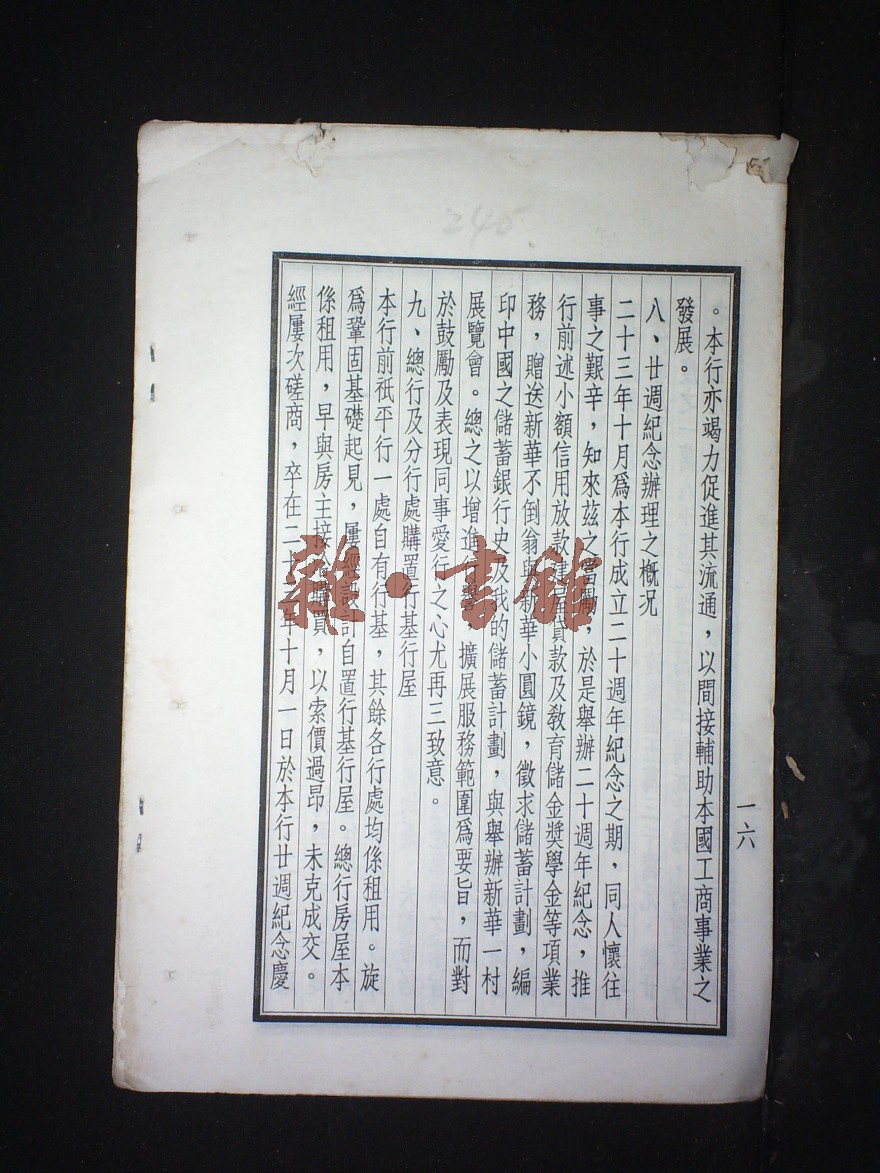 。本行亦竭力促進其流通，以間接輔助本國工商事業之
發展。
八、廿週紀念辦理之概況
二十三年十月爲本行成立二十週年紀念之期，同人懷往
事之艱辛，知來茲之當勵，於是舉辦二十週年紀念，推
行前述小額信用放款建屋貸款及敎育儲金獎學金等項業
務，贈送新華不倒翁與新華小圓鏡，徵求儲蓄計劃，編
印中國之儲蓄銀行史及我的儲蓄計劃，與舉辦新華一村
展覽會。總之以增進，擴展服務範圍爲要旨，而對
於鼓勵及表現同事愛行之心尤再三致意。
九、總行及分行處購置行基行屋
本行前祇平行一處自有行基，其餘各行處均係租用。旋
爲鞏固基礎起見，屢經設計自置行基行屋。總行房屋本
係租用，早與房主接洽購買，以索價過昂，未克成交。
經屢次磋商，卒在二十三年十月一日於本行廿週紀念慶
一六
246
雜·書館